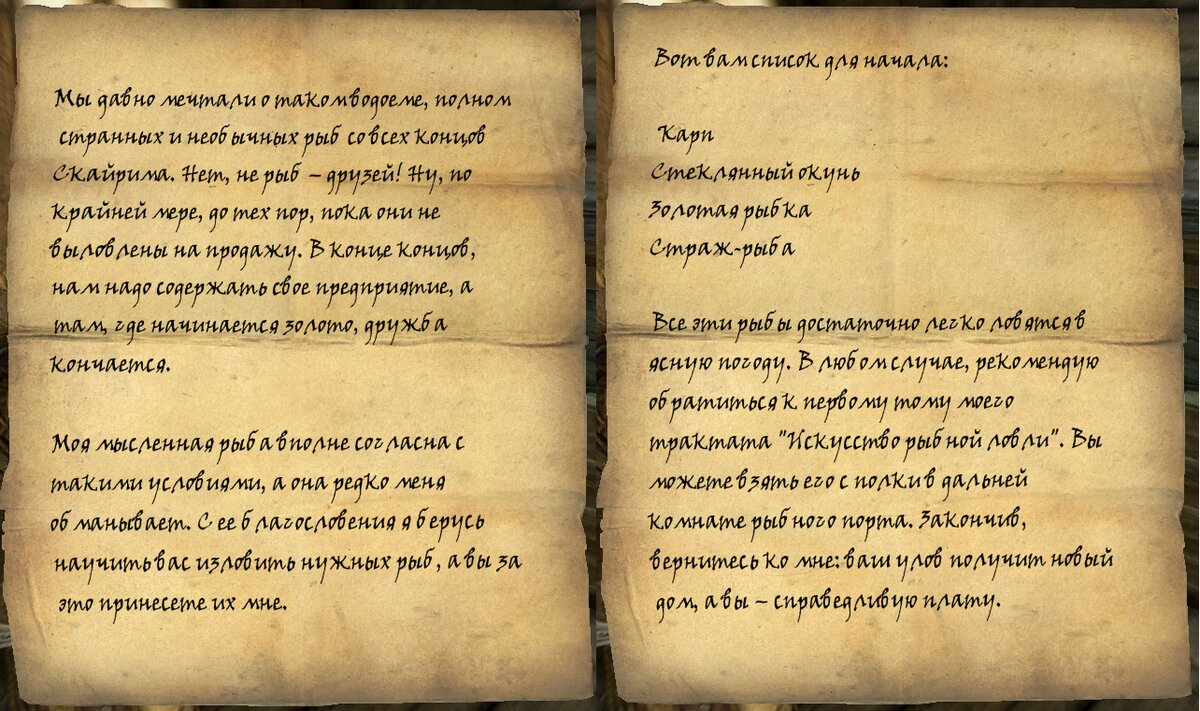 Мы давно мечтали о таком водоеме, полном
странных и необычных рыб со всех концов
Скайрима. Нет, не рыб – друзей! Ну, по
крайней мере, до тех пор, пока они не
выловлены на продажу. В конце концов,
нам надо содержать свое предприятие, а
там, где начинается золото, дружба
кончается.
Моя мысленная рыба вполне согласна с
такими условиями, а она редко меня
обманывает. С ее благословения я берусь
научить вас изловить нужных рыб, а вы за
это принесете их мне.
Вот вам список для начала:
Карп
Стеклянный окунь
Золотая рыбка
Страж-рыба
Все эти рыбы достаточно легко ловятся в
ясную погоду. В любом случае, рекомендую
обратиться к первому тому моего
трактата "Искусство рыбной ловли". Вы
можете взять его с полки в дальней
комнате рыбного порта. Закончив,
вернитесь ко мне: ваш улов получит новый
дом, а вы – справедливую плату.